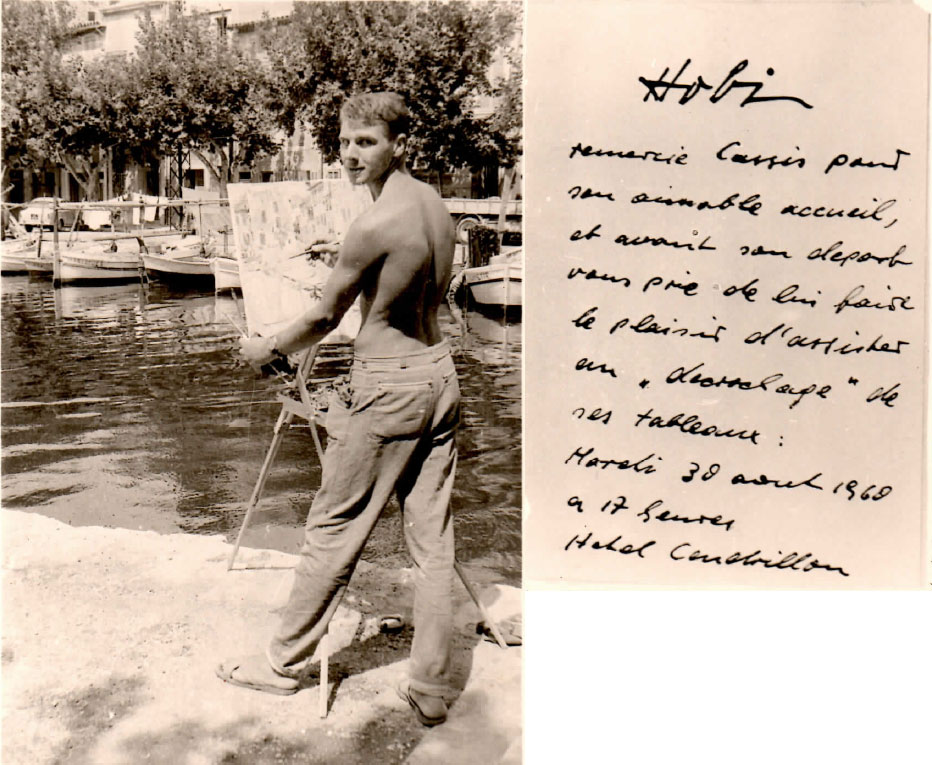 Hobi
remercie Cassis pour
son aimable accueil,
et avant son depart
vous prie de lui faire
le plaisir d'assister
au „decrochage" de
ses tableaux:
Mardi 30 aout 1960
a 17 heures
Hotel Cendrillon